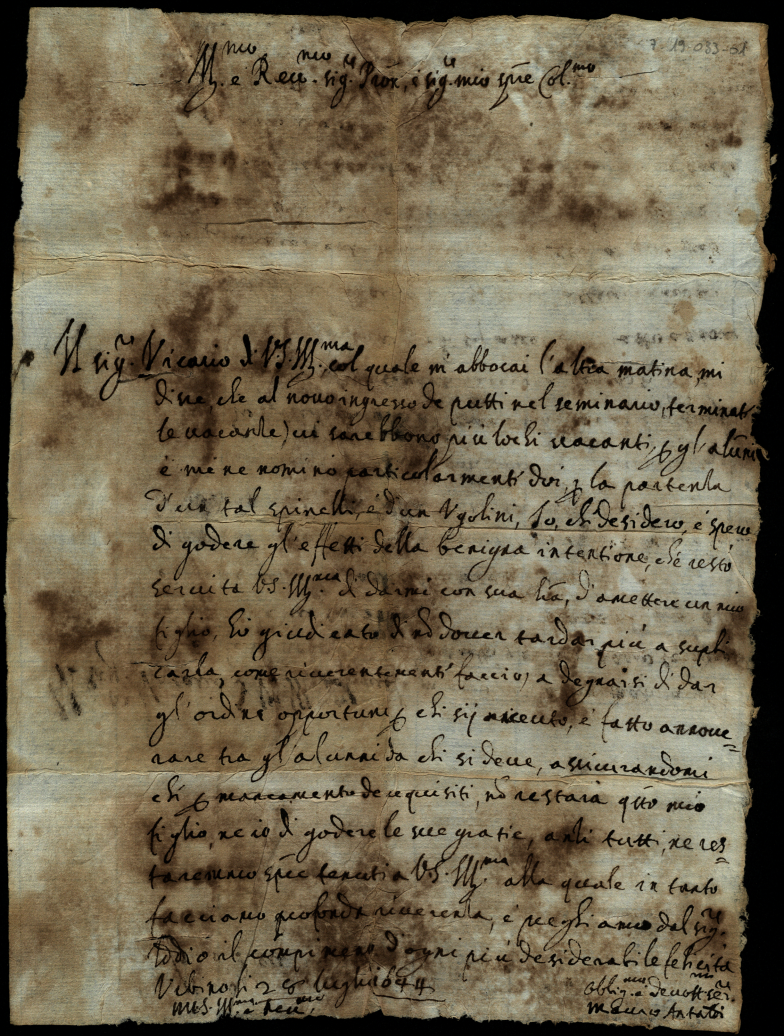 7-19-083-61
Ill.mo e Reu.mo sig.r Pron, e sig.r mio spre Col.mo
Il sig.r Vicario di V.S. Ill.ma col quale m'abbocai l'altra matina, mi
disse, che al novo ingresso de putti nel seminario, terminate
le vacanze) vi sarebbono più lochi vacanti, p gl'alunni
e me ne nominò particolarmente doi, p la partenza
d'un tal spinelli, e d'un Vgolini, Io, che desidero, e spero
di godere gl'effetti della benigna intentione, che restò
seruita V.S. Ill.ma di darmi con sua lra, d'amettere un mio
figlio, hò giudicato di nõ douer tardar più a supli
carla, come riuerentemente faccio, a degnarsi di dar
gl'ordini opportuni, p che sij riceuto, e fatto annoue=
rare tra gl'alunni da chi si deue, assicurandomi
che p mancamento de requisiti, nõ restarà qsto mio
figlio, ne io di godere le sue gratie, anzi tutti, ne res=
taremmo spre tenuti a V.S. Ill.ma alla quale in tanto
facciamo profonda riuerenza, e preghiamo dal sig.r
Iddio il compimento d'ogni più desiderabile felicità
Vrbino li 28 luglio 1644
Di V.S. Ill.ma e Reu.ma
Oblig.mo e deuotiss.mo ser.re
Mauro Antaldi